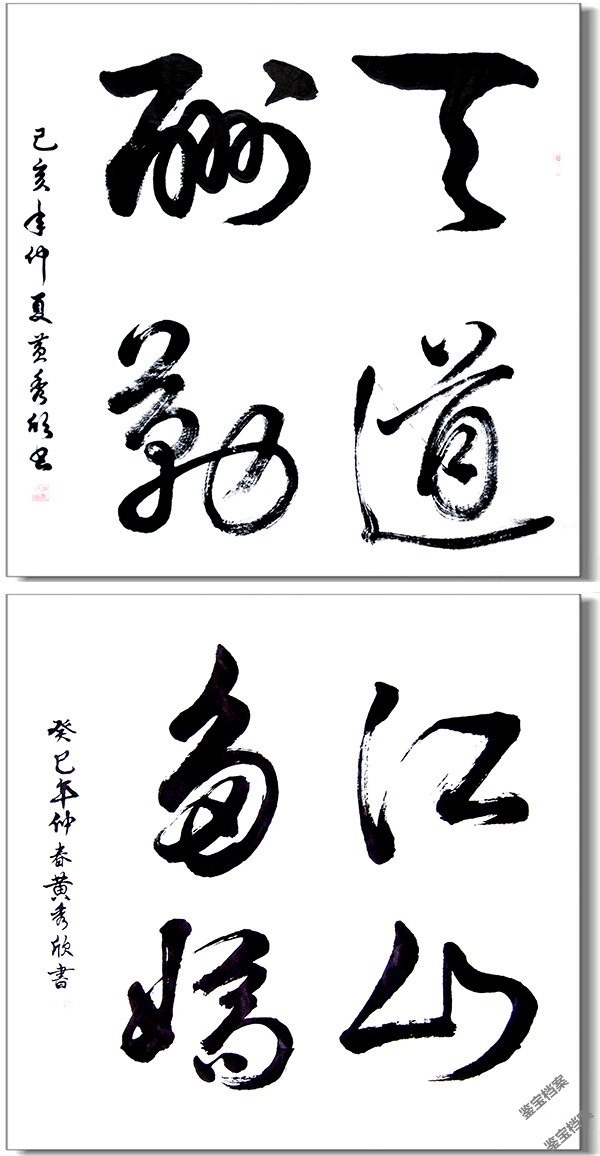 天道
酬勤
己亥年仲夏黄秀欣书
江山
多娇
癸巳年仲春黄秀欣書
鉴宝档案
鉴宝档